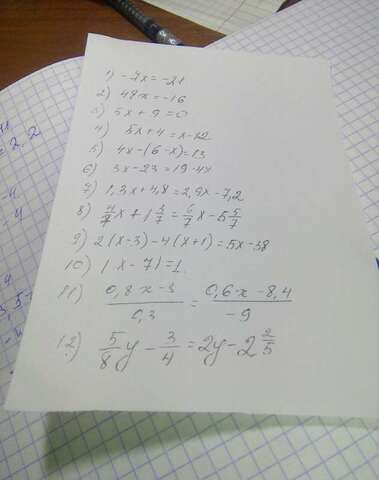 1) -7x=-21
2) 48x=-16
3) 5x+9=0
4) 5x+4=x-12
5) 4x-(6-x)=13
6) 3x-23=19-4x
7) 1,3x+4,8=2,9x-7,2
8) 4/7x+1 3/7=6/7x-5 5/7
9) 2(x-3)-4(x+1)=5x-38
10) |x-7|=1
11) 0,8x-3/0,3=0,6x-8,4/-9
12) 5/8y-3/4=2y-2 2/5